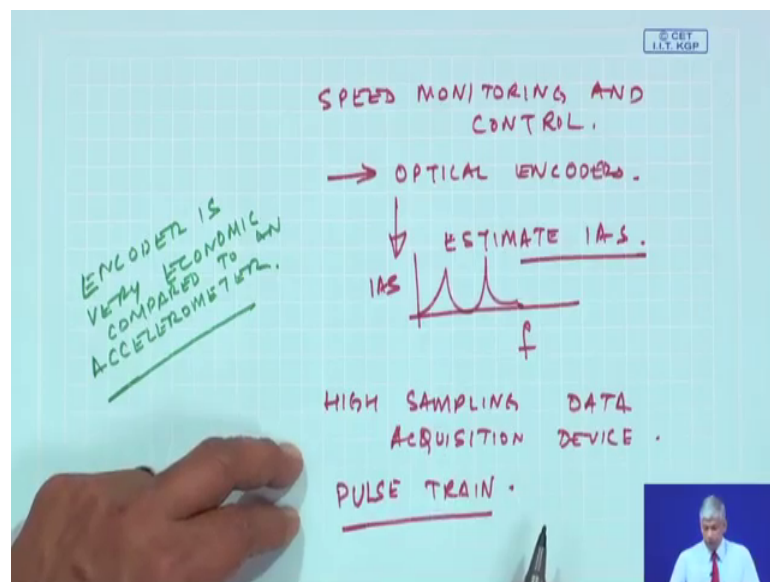 © CET
I.I.T. KGP
SPEED MONITORING AND
CONTROL.
→ OPTICAL ENCODERS.
ESTIMATE IAS.
IAS
f
ENCODER IS
VERY ECONOMIC
COMPARED TO AN
ACCELEROMETER.
HIGH SAMPLING DATA
ACQUISITION DEVICE.
PULSE TRAIN.